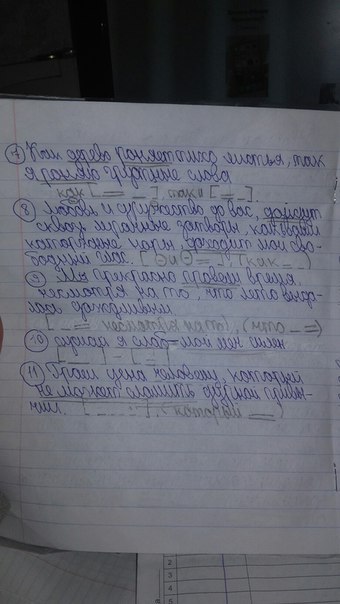 7 Как дерево роняет тихо листья, так
я роняю грустные слова
как [ = ], так и [ = ].
8 Любовь и дружество до вас дойдут
сквозь мрачные затворы, как в ваши
каторжные норы доходит мой сво-
бодный глас. [ О и О = ], (как = _)
9 Мы прекрасно провели время,
несмотря на то, что лето выда-
лось дождливым
[ _ = несмотря на то], (что _ =)
10 один я слаб – мой меч силен
[ ] – [ ]
11 Грош цена человеку, который
не может сломить дурной привы-
чки. [ ], (который = )
2
3
4
5